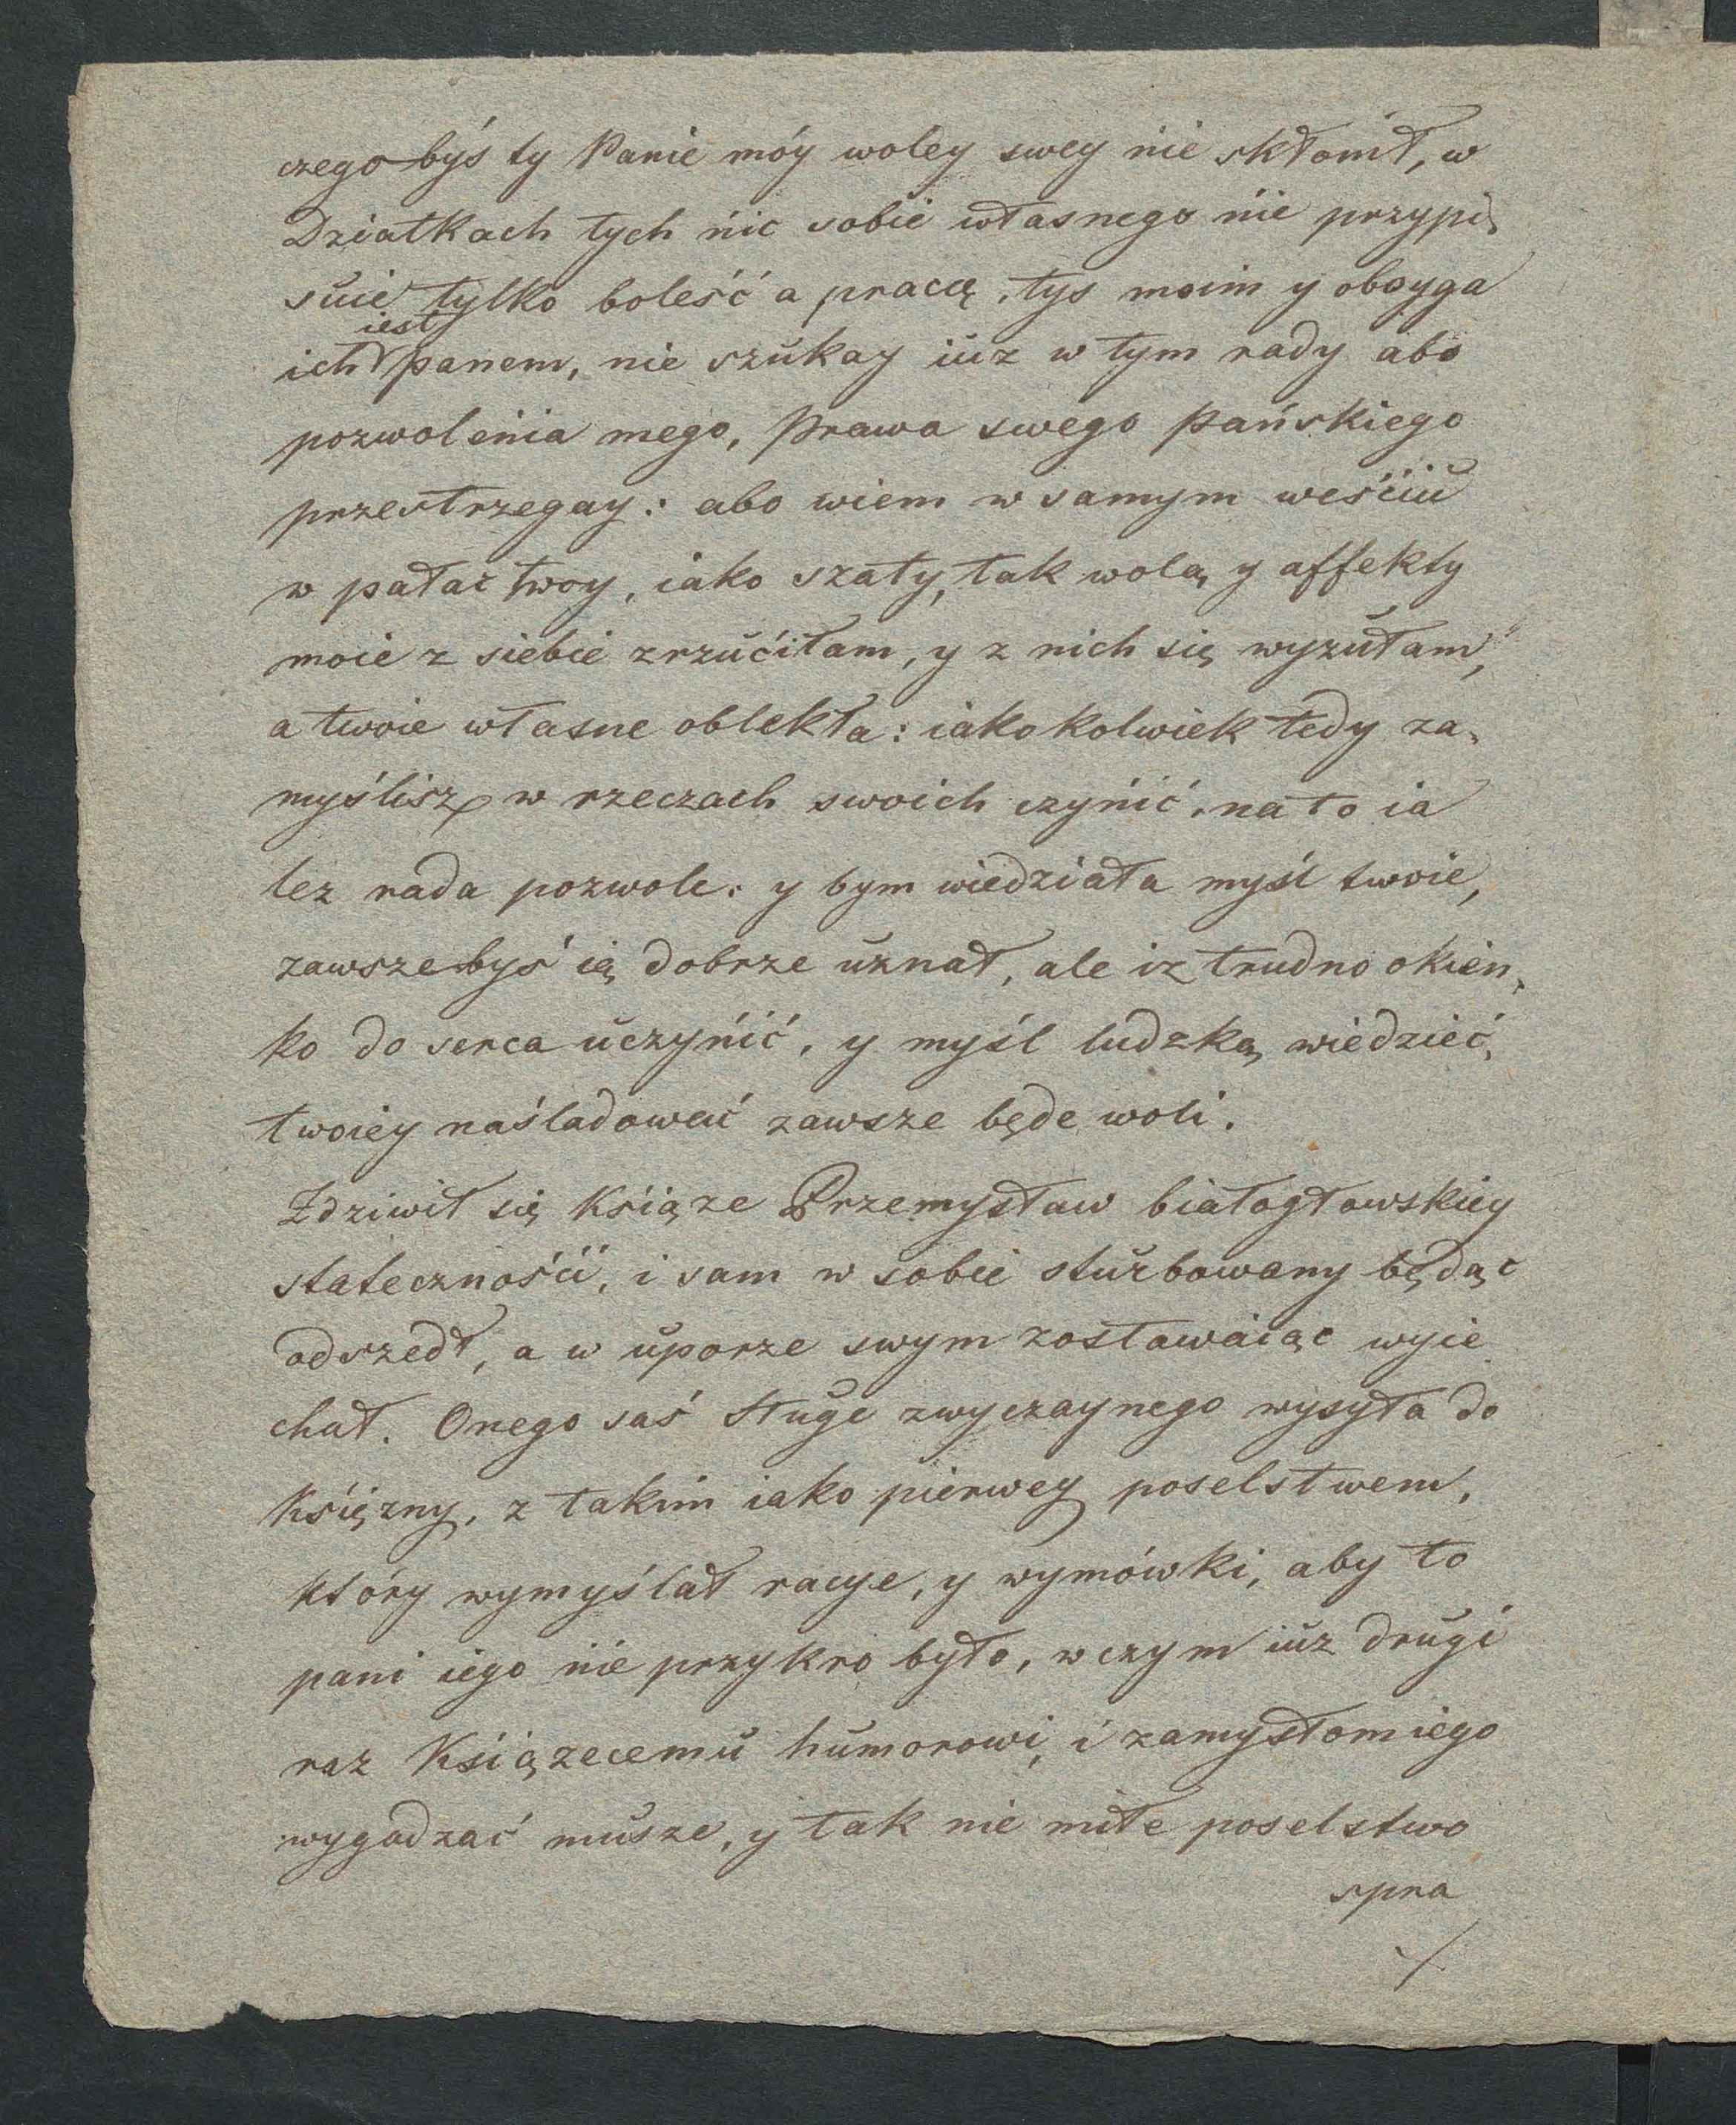 czego byś ty Panie móy woley swey nie skłonił, w
Dziatkach tych nic sobie własnego nie przypi,
suie tylko boleść a pracą, tys moim y oboyga
iest
ich panem, nie szukay iuz w tym rady abo
pozwolenia mego, Prawa swego Pańskiego
przestrzegay: abo wiem w samym weściu
w pałac twoy, iako szaty, tak wolą y affekty
moie z siebie zrzuciłam, y z nich się wyzułam,
a twoie własne oblekła: iakokolwiek tedy za,
myślisz w rzeczach swoich czynić, na to ia
tez rada pozwole: y bym wiedziała myśl twoie,
zawsze byś ią dobrze uznał, ale iz trudno okien,
ko do serca uczynić, y myśl ludzką wiedzieć,
twoiey naśladować zawsze będe woli.
Zdziwił się Książe Przemysław białogłowskiey
stateczności, i sam w sobie sturbowany będąc
odszedł, a w uporze swym zostawaiąc wyie
chał. Onego saś Sługe zwyczaynego wysyła do
Księzny, z takim iako pierwey poselstwem,
który wymyślał racye, y wymówki, aby to
pani iego nie przykro było, w czym iuz drugi
raz Książecemu humorowi, i zamysłom iego
wygadzać musze, y tak nie miłe poselstwo
spra